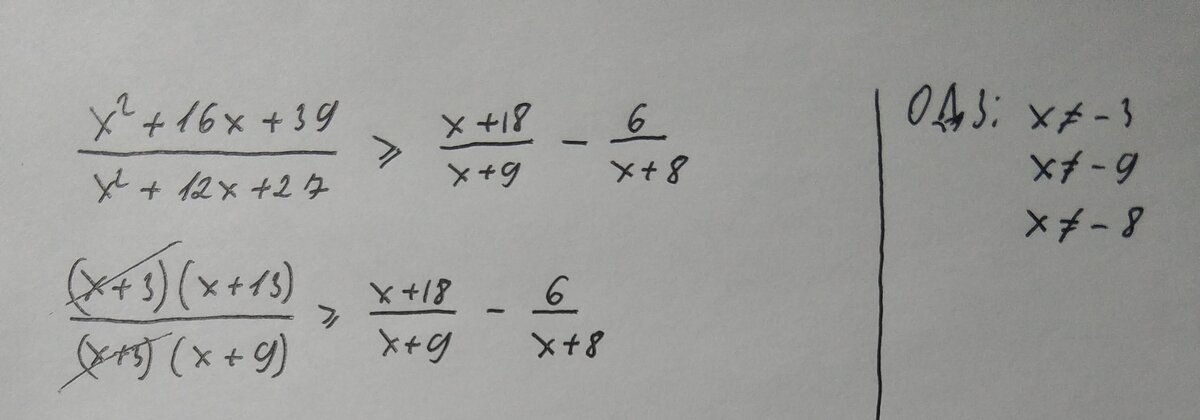 x² + 16x + 39 / x² + 12x + 27 ⩾ x + 18 / x + 9 − 6 / x + 8
(x + 3)(x + 13) / (x + 3)(x + 9) ⩾ x + 18 / x + 9 − 6 / x + 8
ОДЗ: x ≠ − 3
x ≠ − 9
x ≠ − 8